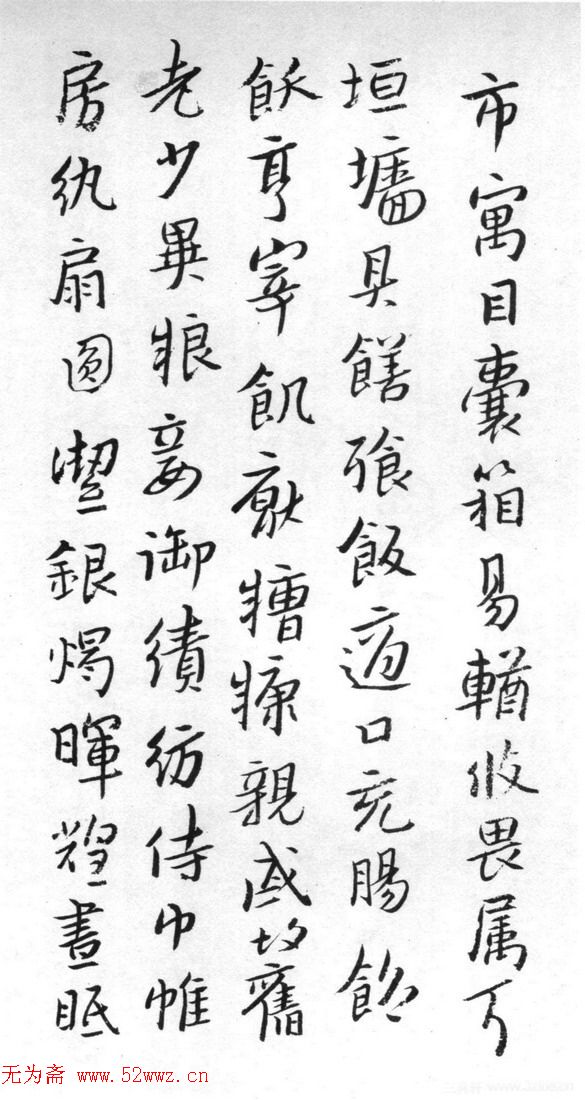 市寓目囊箱易輶攸畏属耳
垣墻具饍飡飯適口充腸飽
飫亨宰飢厭糟糠親戚故舊
老少異粮妾御績紡侍巾帷
房紈扇圓潔銀燭暉煌晝眠
无为斋 www.52wwz.cn